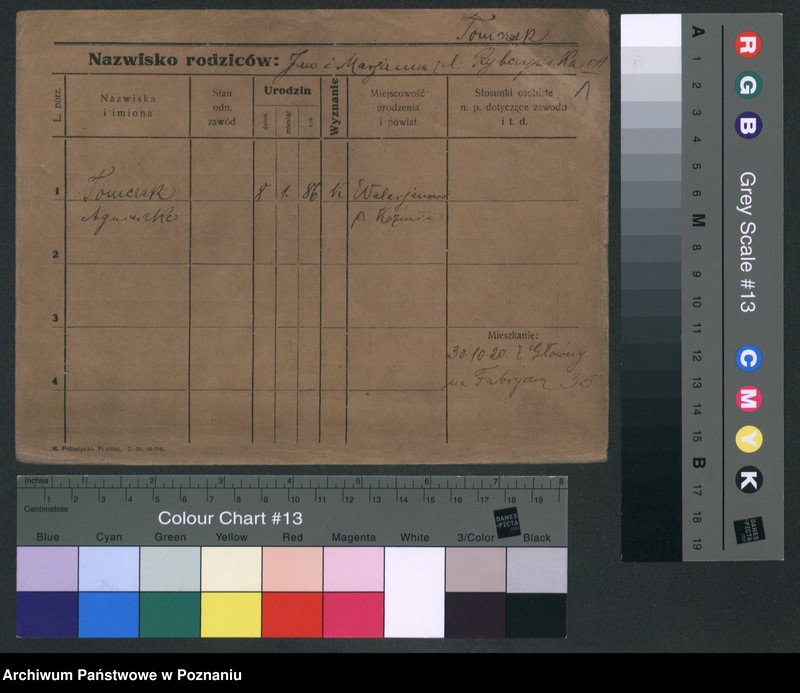 Tomczak
Nazwisko rodziców: Jan i Marjanna zd. Rybczyńska
L. porz.
Nazwiska
i imiona
Stan
odn.
zawód
Urodzin
dzień
miesiąc
rok
Wyznanie
Miejscowość
urodzenia
i powiat
Stosunki osobiste
n. p. dotyczące zawodu
i t. d.
1
Tomczak
Agnieszka
8
1.
86
k
Walerjanowo
p. Koźmin
2
3
4
Mieszkanie:
30.10.20. z Głowny
na Fabryczną 35
inches 1 2 3 4 5 6 7 8
1 2 3 4 5 6 7 8 9 10 11 12 13 14 15 16 17 18 19
Centimetres
Colour Chart #13
DANES
-PICTA
.COM
Blue Cyan Green Yellow Red Magenta White 3/Color Black
A 1 2 3 4 5 6 M 8 9 10 11 12 13 14 15 B 17 18 19
R G B
Grey Scale #13
C M Y K
DANES
-PICTA
.COM
Archiwum Państwowe w Poznaniu